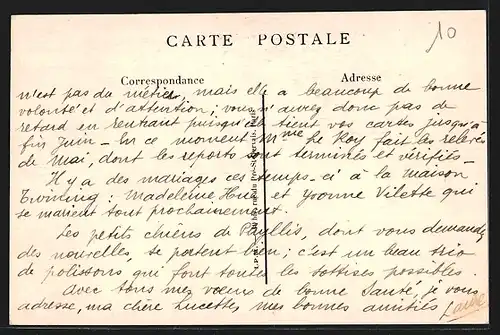 10
CARTE POSTALE
Correspondance
Adresse
n'est pas du métier, mais elle a beaucoup de bonne
volonté et d'attention ; vous n'aurez donc pas de
retard en rentrant puisqu'elle tient vos cartes jusqu'à
fin Juin - En ce moment Mme Le Roy fait les relevés
de Mai, dont les reports sont terminés et vérifiés -
Il y a des mariages ces temps-ci à la maison
Twining : Madeleine Hue et Yvonne Vilette qui
se marient tout prochainement.
Les petits chiens de Phyllis, dont vous demandez
des nouvelles, se portent bien ; c'est un beau trio
de polissons qui font toutes les sottises possibles.
Avec tous mes vœux de bonne Santé, je vous
adresse, ma chère Lucette, mes bonnes amitiés